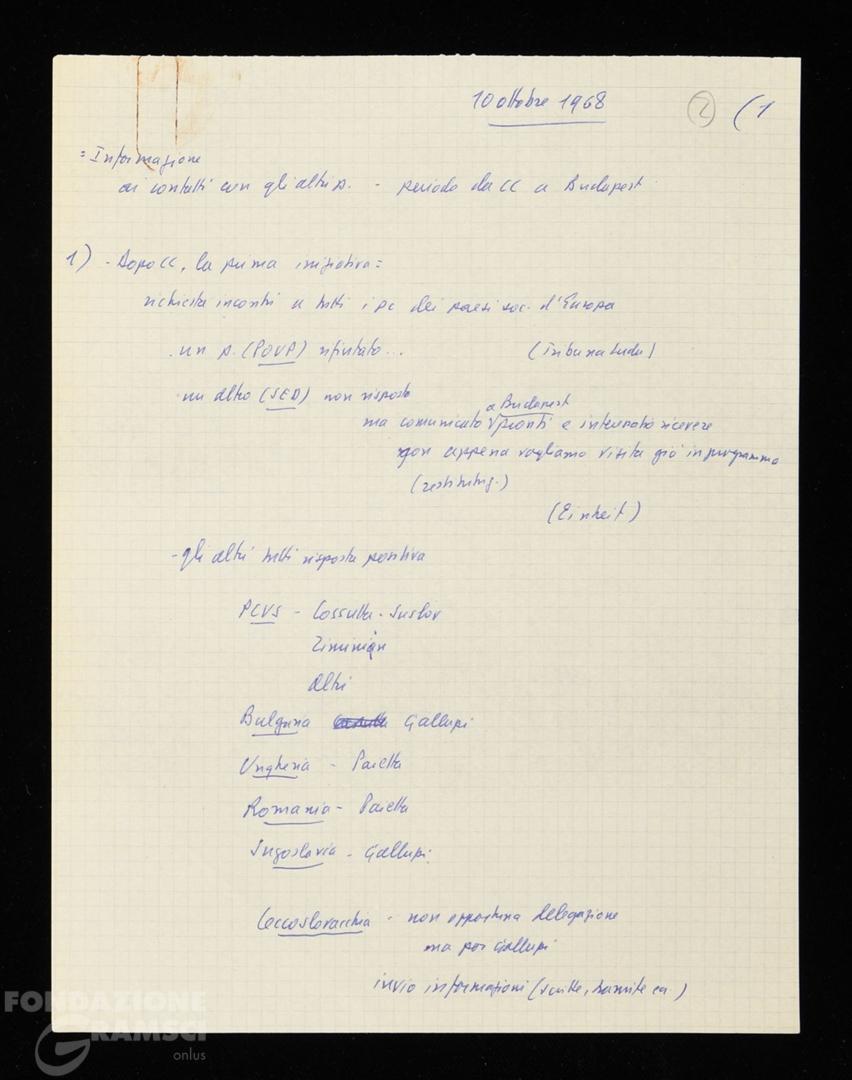 10 ottobre 1968
2 (1
= Informazione
ai contatti con gli altri p. - periodo da CC a Budapest
1) - Dopo CC, la prima iniziativa =
richiesta incontri a tutti i pc dei paesi soc. d'Europa
. un p. (POUP) rifiutato... (Tribuna Ludu)
. un altro (SED) non risposto
ma comunicato a Budapest pronti e interessato ricevere
non appena vogliamo visita già in programma
(restituz.)
(Einheit)
- gli altri tutti risposta positiva
PCUS - Cossutta - Suslov
Zimianin
altri
Bulgaria Gallupi
Ungheria - Paietta
Romania - Paietta
Jugoslavia - Gallupi
Cecoslovacchia - non opportuna delegazione
ma poi Gallupi
invio informazioni (scritte, tramite ca)
FONDAZIONE
GRAMSCI
onlus